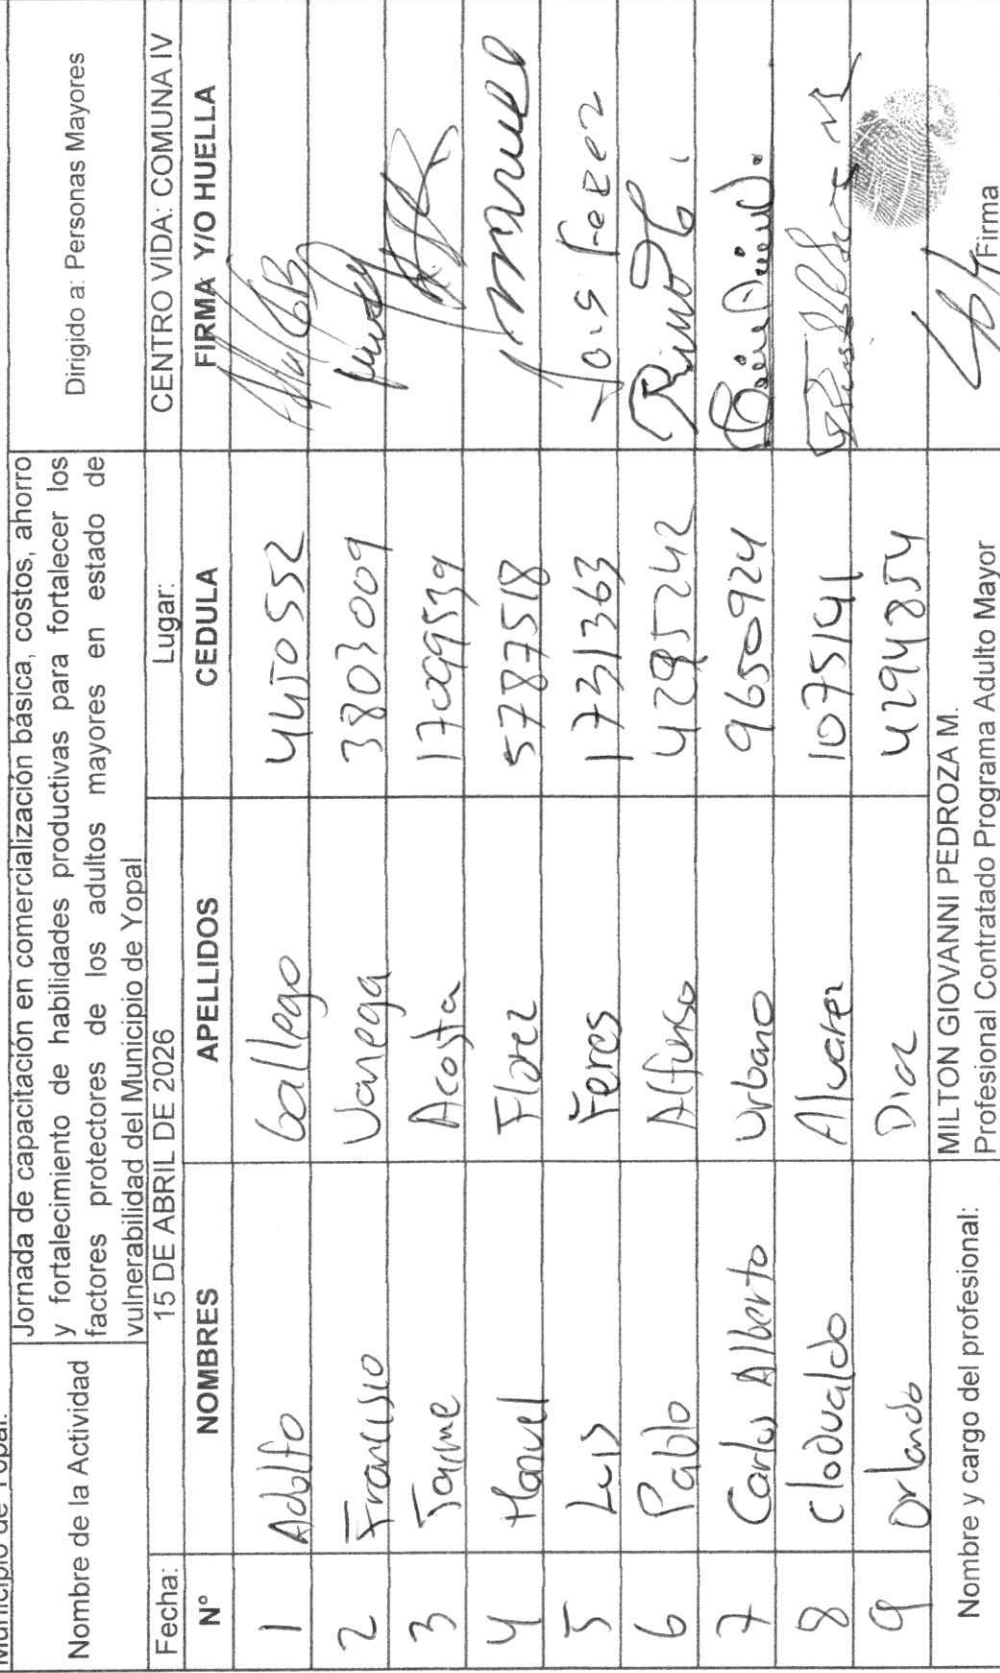 Municipio de Yopal.
Nombre de la Actividad
Jornada de capacitación en comercialización básica, costos, ahorro
y fortalecimiento de habilidades productivas para fortalecer los
factores protectores de los adultos mayores en estado de
vulnerabilidad del Municipio de Yopal
Dirigido a: Personas Mayores
Fecha: 15 DE ABRIL DE 2026 Lugar: CENTRO VIDA: COMUNA IV
N° NOMBRES APELLIDOS CEDULA FIRMA Y/O HUELLA
1 Adolfo Gallego 4450552
2 Francisio Vanega 3803009
3 Jaime Acosta 17099539
4 Manuel Florez 5787518 manuel
5 Luis Feres 1731363 Lois Ferez
6 Pablo Alfonso 4285242
7 Carlos Alberto Urbano 9650924
8 Clodualdo Alvarez 1075141
9 Orlando Diaz 4294854
Nombre y cargo del profesional:
MILTON GIOVANNI PEDROZA M.
Profesional Contratado Programa Adulto Mayor
Firma